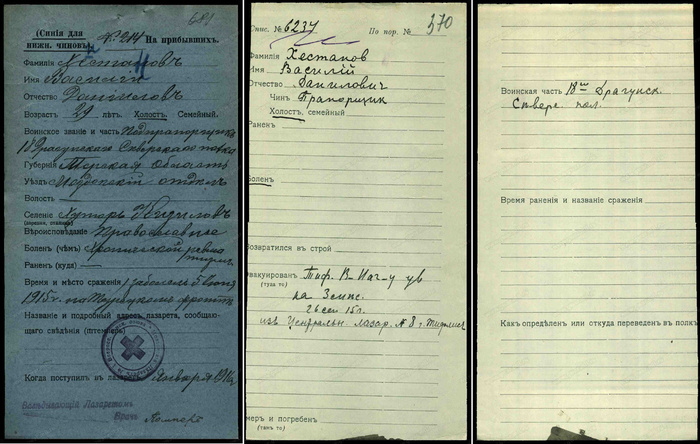 681
(Синія для
нижн. чиновъ) № 214 На прибывшихъ.
Фамилія Хестановъ
Имя Василій
Отчество Даниловъ
Возрастъ 29 лѣтъ. Холостъ. Семейный.
Воинское званіе и часть Подпрапорщикъ
18 Драгунскаго Сѣверскаго полка
Губернія Терская Область
Уѣздъ Моздокскій отдѣлъ
Волость
Селеніе Хуторъ
Вѣроисповѣданіе Православное
Боленъ (чѣмъ)
Раненъ (куда)
Время и мѣсто сраженія заболелъ 5 Іюня
1915 г. на Турецкомъ фронтѣ
Названіе и подробный адресъ лазарета, сообщаю-
щаго свѣдѣнія (штемпель)
Когда поступилъ въ лазаретъ Января 1916
Завѣдывающій Лазаретомъ
Врачъ
Спис. № 6237 По пор. № 370
Фамилія Хестановъ
Имя Василій
Отчество Данилович
Чинъ Прапорщик
Холост, семейный
Раненъ
Боленъ
Возвратился въ строй
Эвакуированъ Тиф.
(туда то)
на Земск.
26 сен 15 г.
изъ Центральн. лазар. № 8 г. Тифлис
Умеръ и погребенъ
(тамъ то)
Воинская часть 18й Драгунск.
Сѣверс. пол.
Время раненія и названіе сраженія
Какъ опредѣленъ или откуда переведенъ въ полкъ